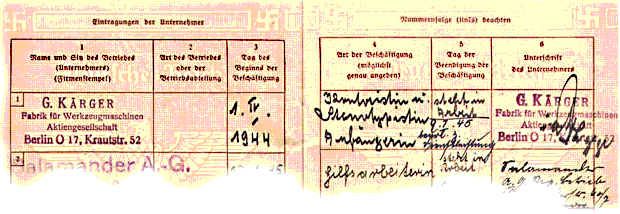 Eintragungen der Unternehmer
1
Name und Sitz des Betriebes
(Unternehmers)
(Firmenstempel)
2
Art des Betriebes
oder der
Betriebsabteilung
3
Tag des
Beginns der
Beschäftigung
1
G. KÄRGER
Fabrik für Werkzeugmaschinen
Aktiengesellschaft
Berlin O 17, Krautstr. 52
1. IV.
1944
2
Salamander A.-G.
45
Nummernfolge (links) beachten
4
Art der Beschäftigung
(möglichst
genau angeben)
5
Tag der
Beendigung der
Beschäftigung
6
Unterschrift
des Unternehmers
Kontoristin u.
Stenotypistin
Anfängerin
steht in
Arbeit
G. KÄRGER
Fabrik für Werkzeugmaschinen
Aktiengesellschaft
Berlin O 17, Krautstr. 52
Hilfsarbeiterin
steht in
Arbeit
Salamander
A.G.